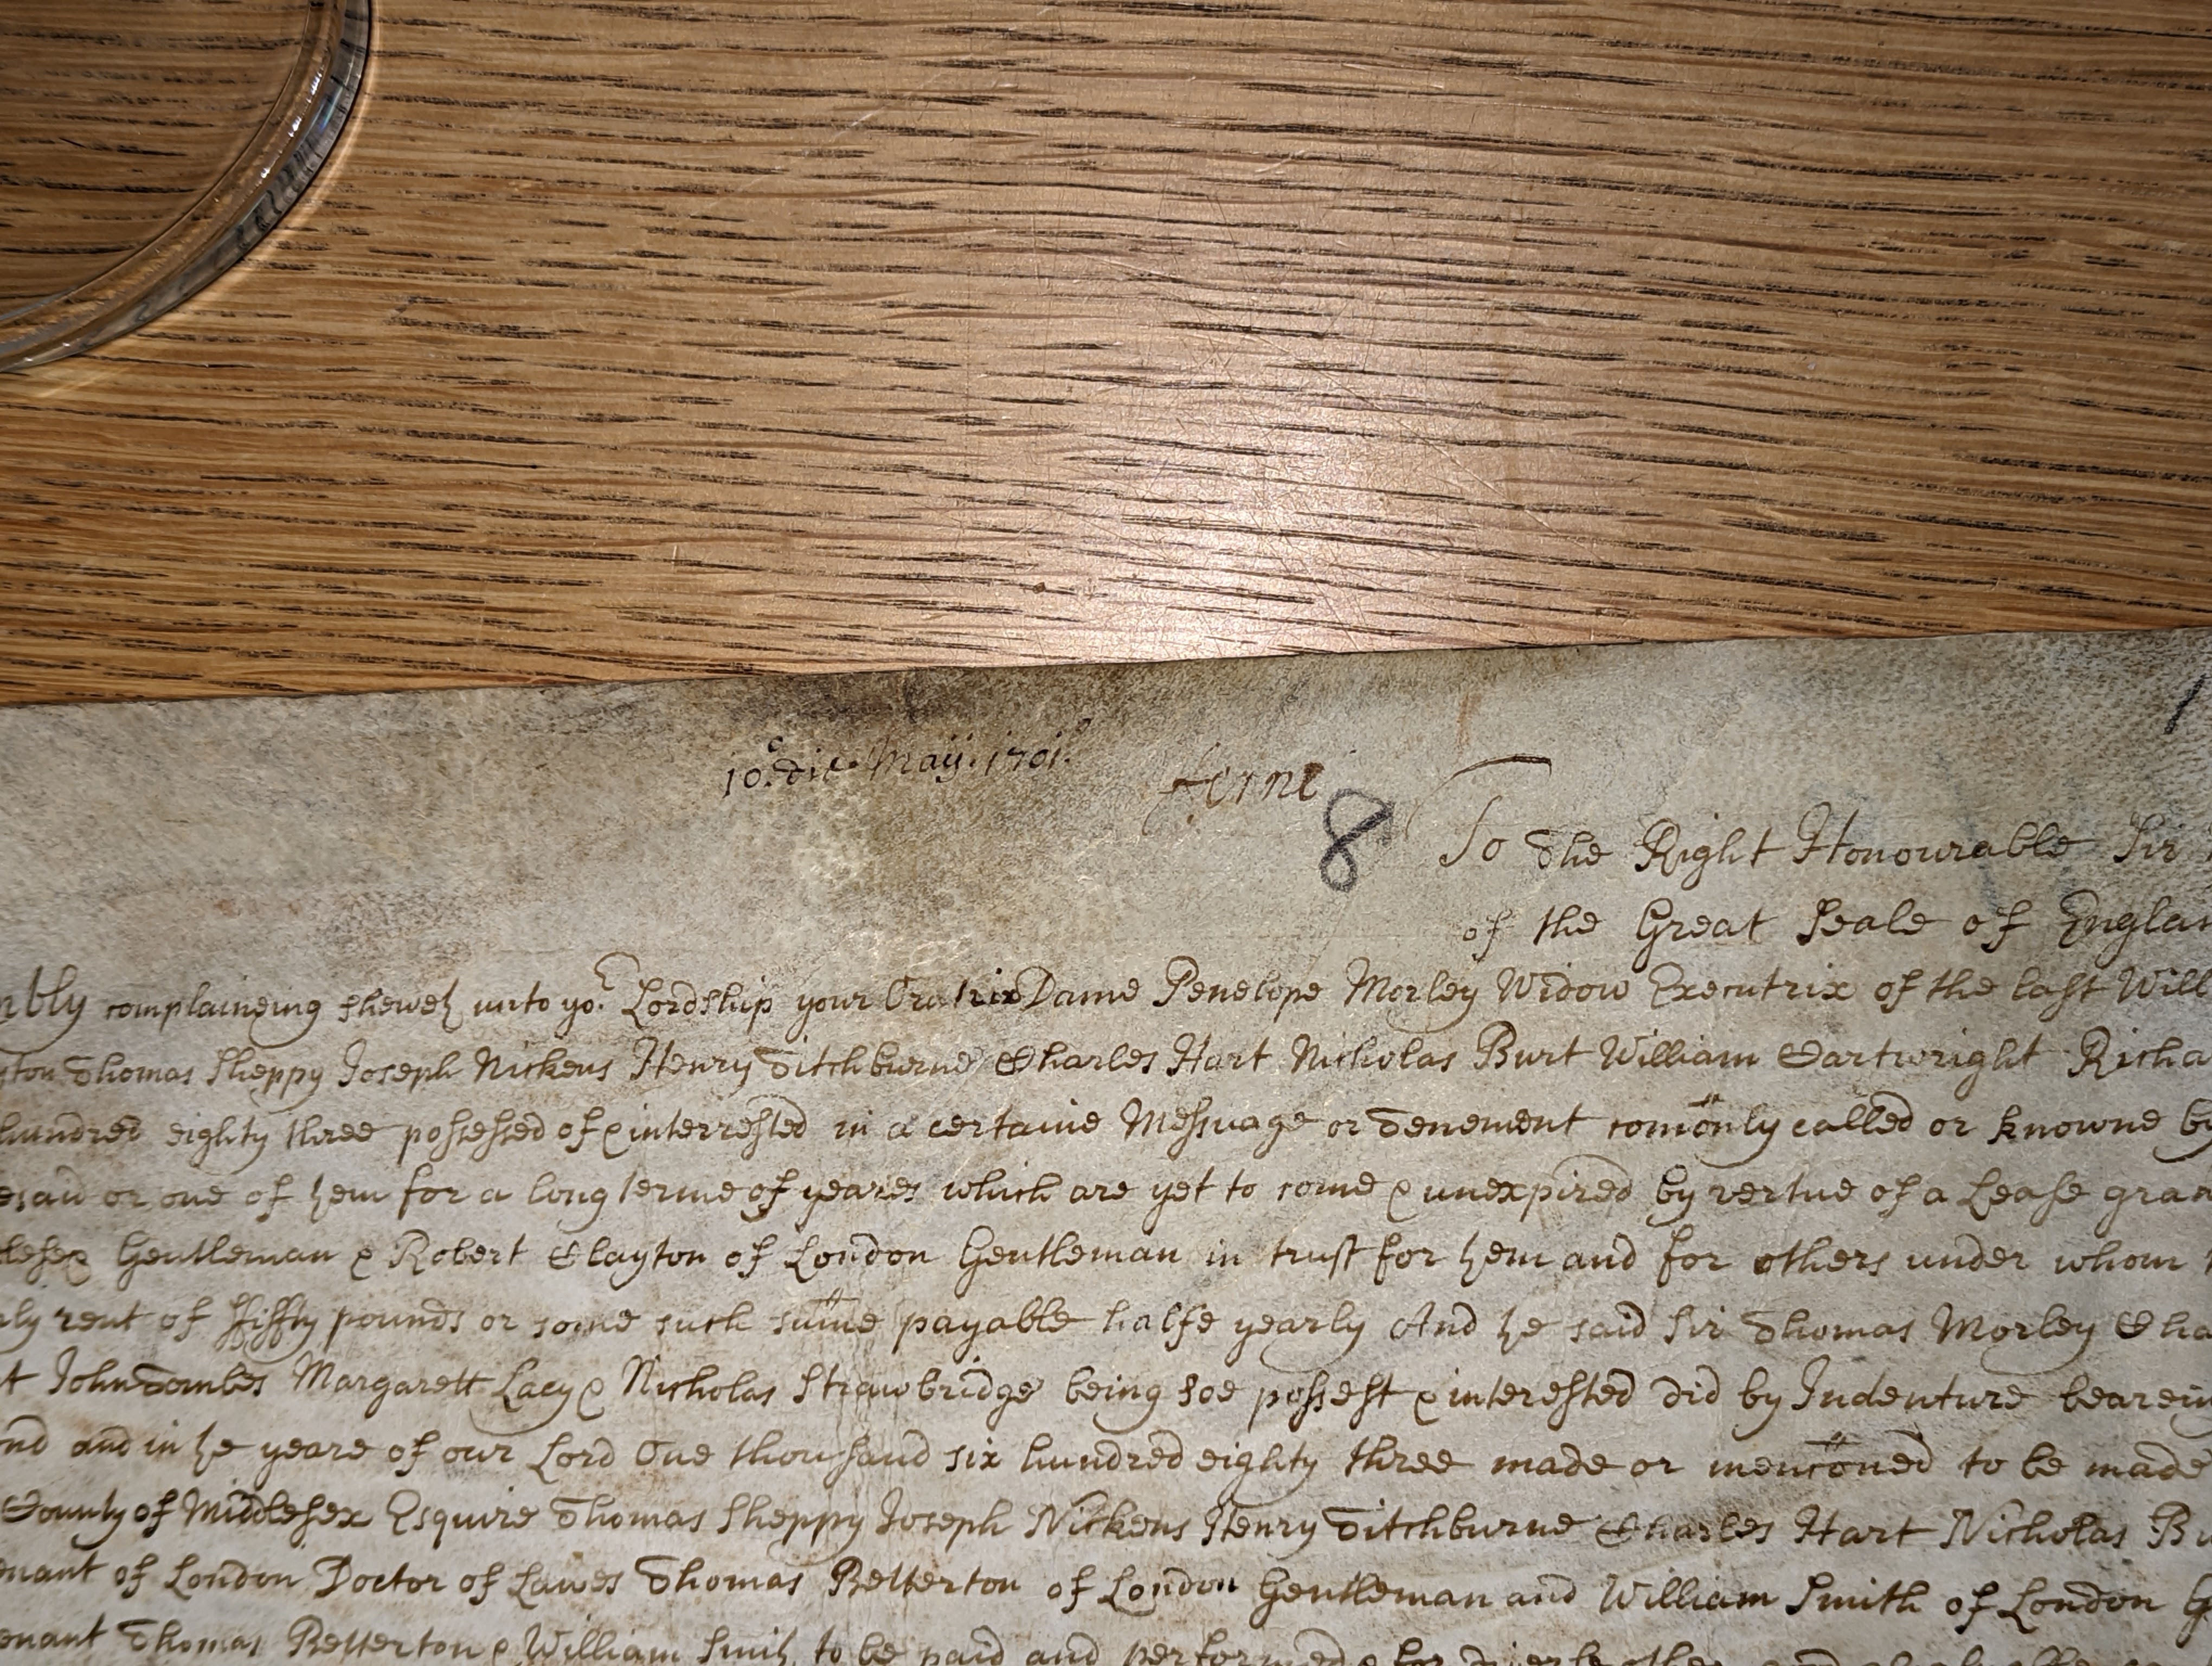 10.o die Maij. 1701.o
ferne
8
To the Right Honourable Sir
of the Great Seale of Englan
mbly complaineing sheweth unto yor. Lordship your Oratrix Dame Penelope Morley Widow Executrix of the last Will
ton Thomas Sheppy Joseph Nickens Henry Ditchburne Charles Hart Nicholas Burt William Cartwright Richa
hundred eighty three possessed of & interrested in a certaine Messuage or Tenement comonly called or knowne by
esaid or one of them for a long terme of yeares which are yet to come & unexpired by vertue of a Lease gran
dlesex Gentleman & Robert Clayton of London Gentleman in trust for them and for others under whom
rly rent of ffiffty pounds or some such sume payable halfe yearly And the said Sir Thomas Morley Cha
t John Tombes Margarett Lacy & Nicholas Strawbridge being soe possest & interested did by Indenture beareing
nd and in the yeare of our Lord One thousand six hundred eighty three made or mencioned to be made
County of Middlesex Esquire Thomas Sheppy Joseph Nickens Henry Ditchburne Charles Hart Nicholas Bu
enant of London Doctor of Lawes Thomas Betterton of London Gentleman and William Smith of London G
enant Thomas Betterton & William Smith to be paid and performed & for